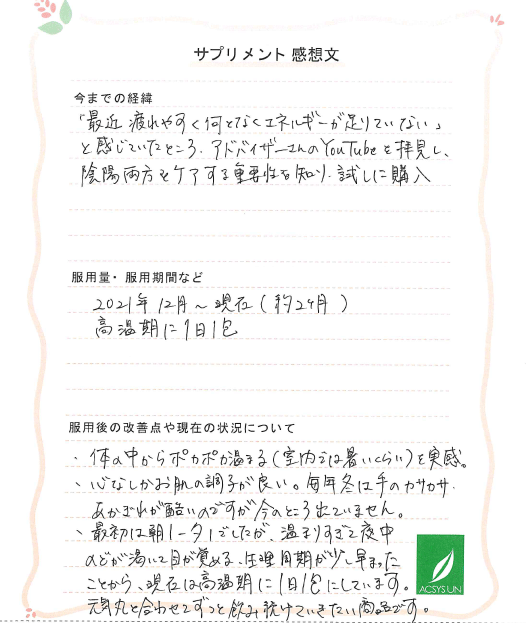 サプリメント 感想文
今までの経緯
「最近 疲れやすく何となくエネルギーが足りていない」
と感じていたところ、アドバイザーさんのYouTubeを拝見し、
陰陽両方をケアする重要性を知り、試しに購入
服用量・服用期間など
2021年12月～現在(約2ヶ月)
高温期に1日1包
服用後の改善点や現在の状況について
・体の中からポカポカ温まる(室内では暑いくらい)を実感。
・心なしかお肌の調子が良い。毎年冬は手のカサカサ・
あかぎれが酷いのですが今のところ出ていません。
・最初は朝1-夕1でしたが、温まりすぎて夜中
のどが渇いて目が覚める、生理周期が少し早まった
ことから、現在は高温期に1日1包にしています。
元気丸と合わせてずっと飲み続けていきたい商品です。
ACSYS UN